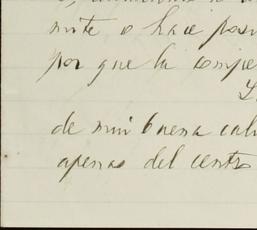 mite o hace posi
por que la compe
de muy buena cali
apenas del centro